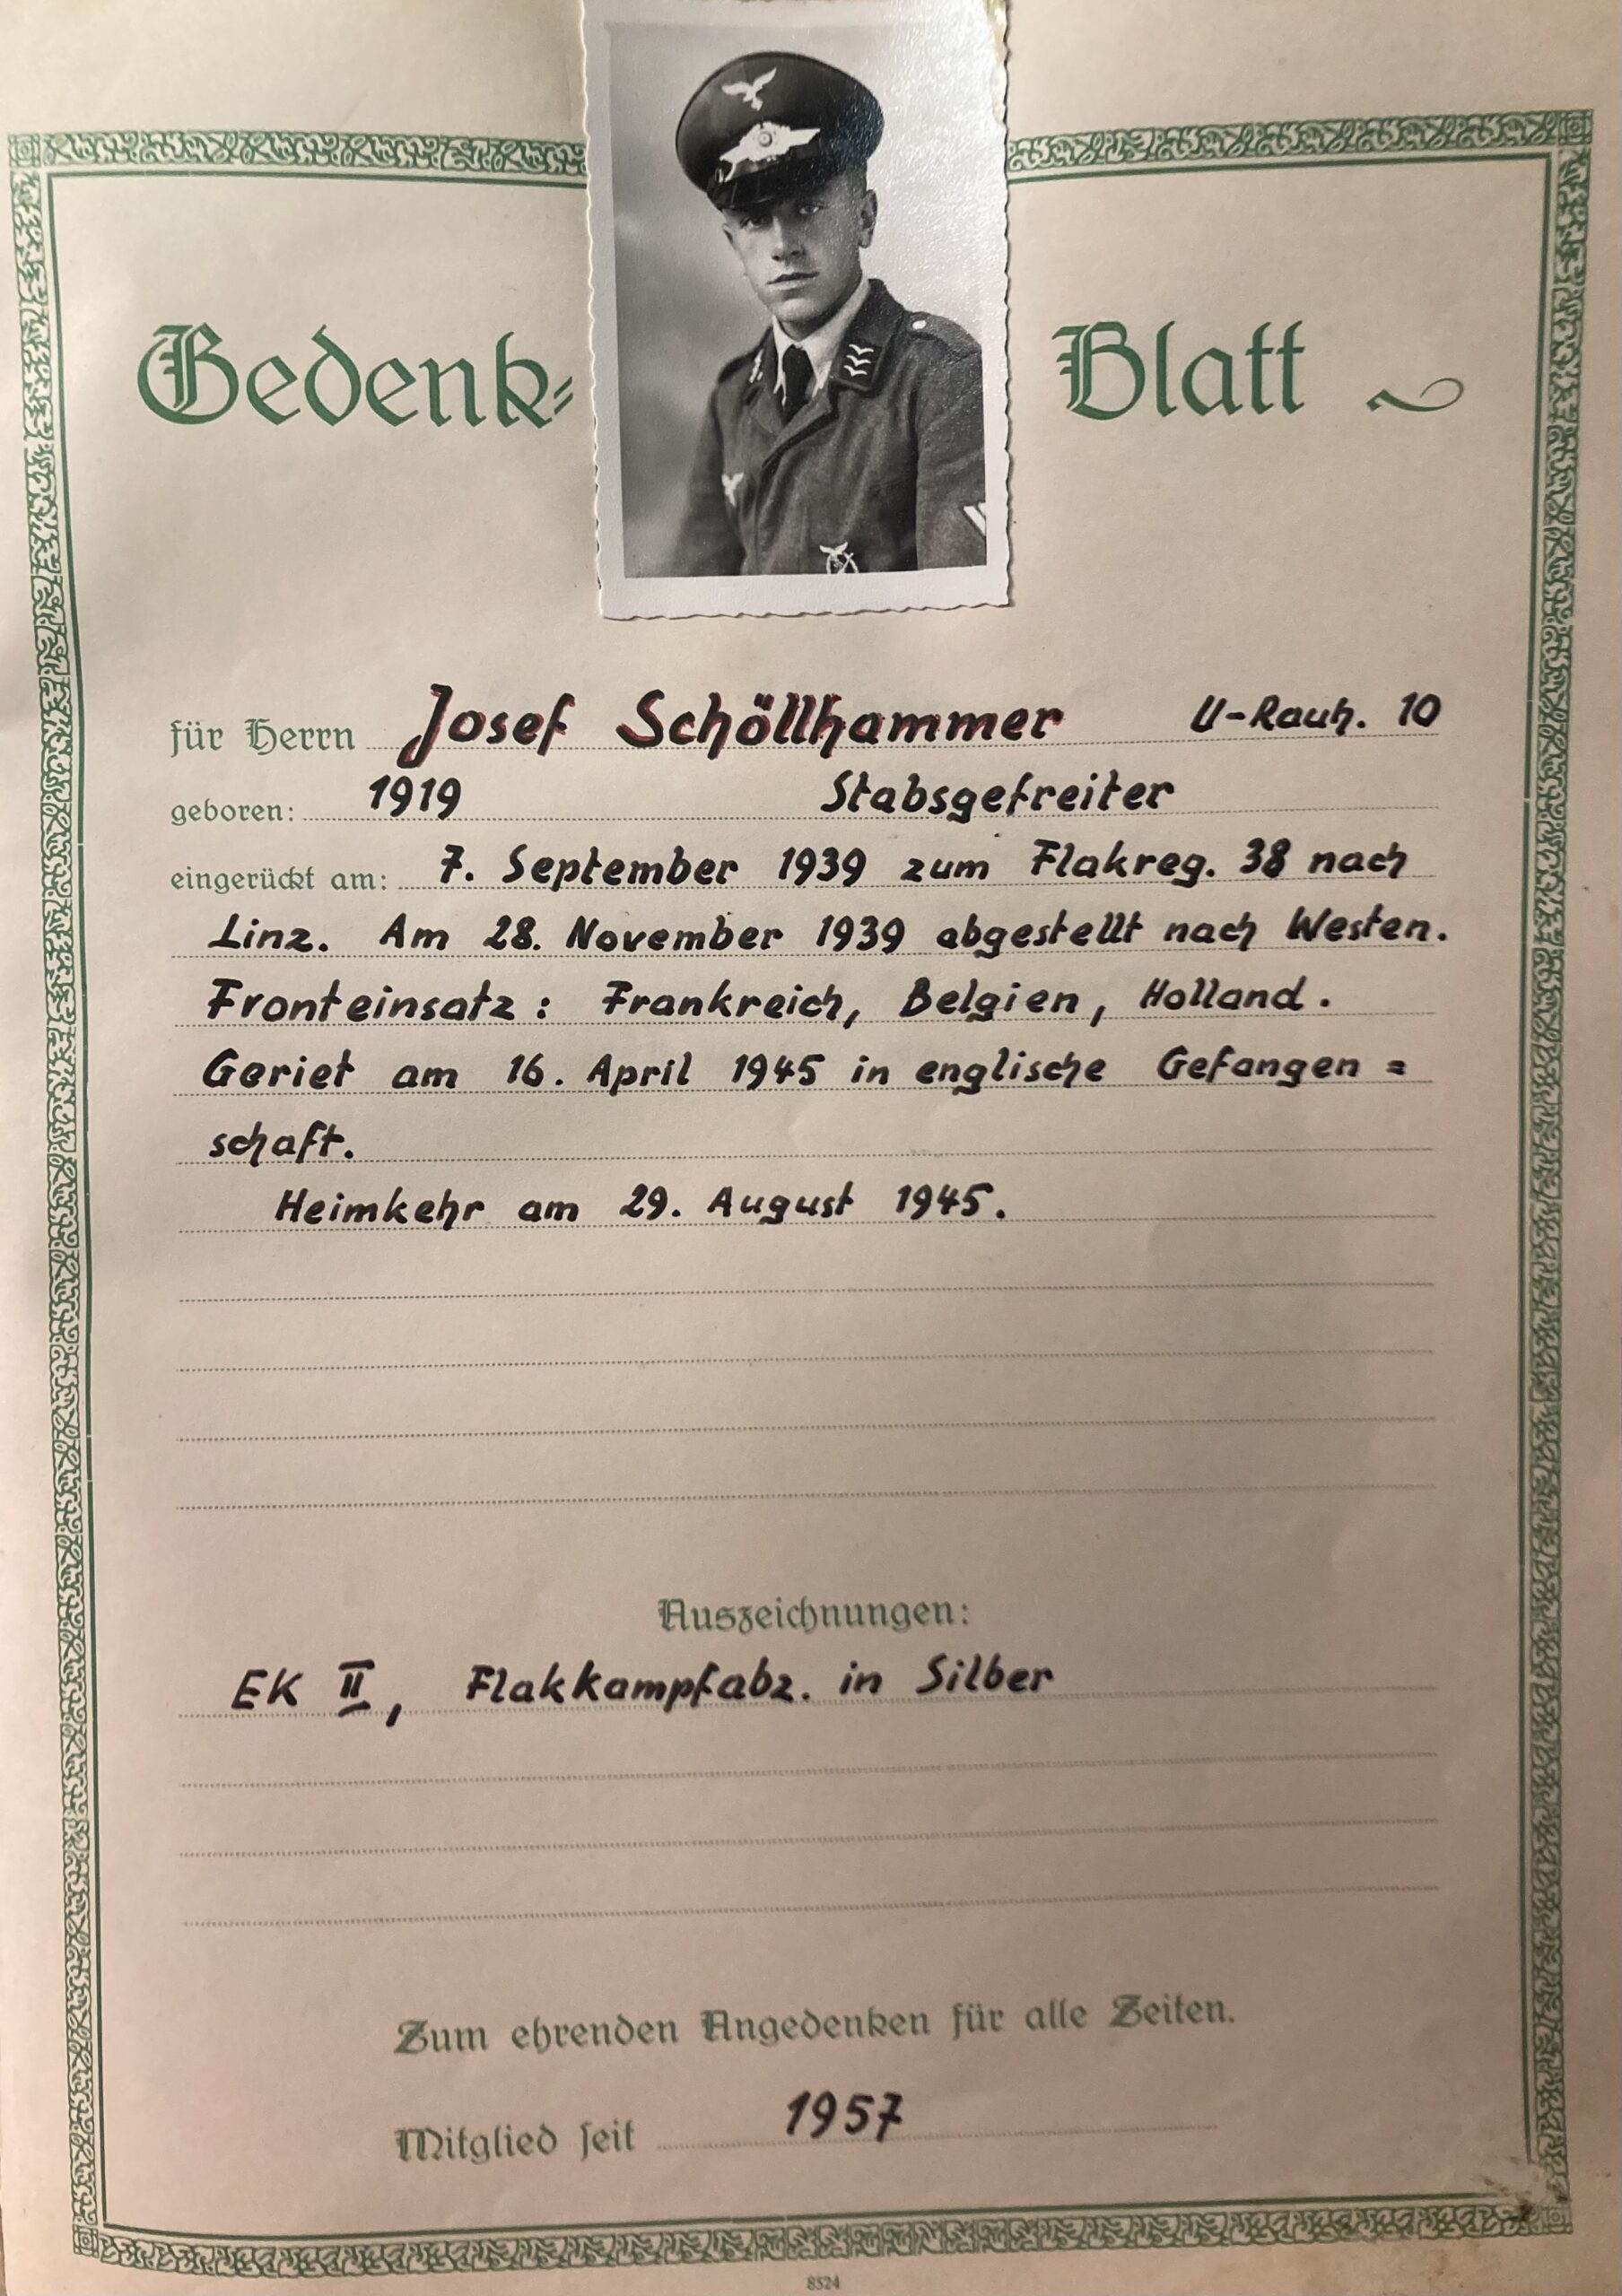 Gedenk= Blatt
für Herrn Josef Schöllhammer U-Rauh. 10
geboren: 1919 Stabsgefreiter
eingerückt am: 7. September 1939 zum Flakreg. 38 nach
Linz. Am 28. November 1939 abgestellt nach Westen.
Fronteinsatz: Frankreich, Belgien, Holland.
Geriet am 16. April 1945 in englische Gefangen =
schaft.
Heimkehr am 29. August 1945.
Auszeichnungen:
EK II, Flakkampfabz. in Silber
Zum ehrenden Angedenken für alle Zeiten.
Mitglied seit 1957
8524